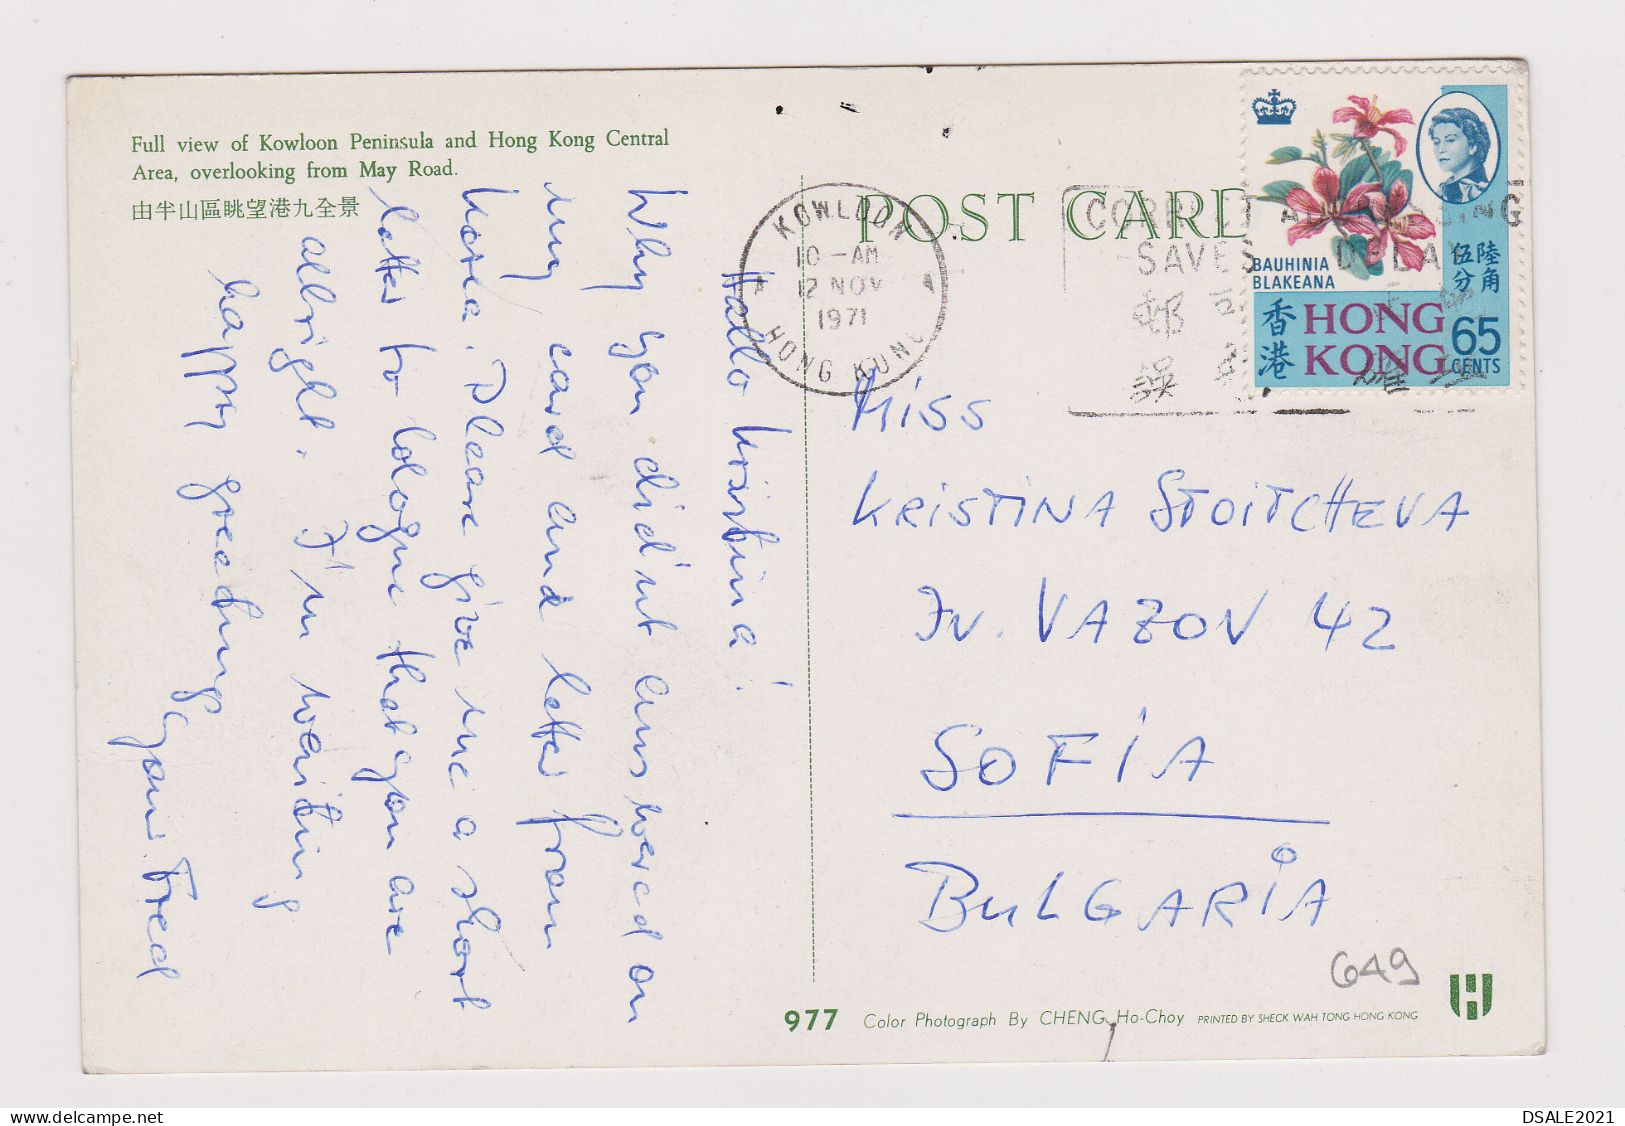 Full view of Kowloon Peninsula and Hong Kong Central
Area, overlooking from May Road.
由半山區眺望港九全景
Hallo Kristina!
Why you did'nt answered on
my card and letter from
Korea. Please give me a short
letter to Cologne that you are
allright. I'm waiting
happy greetings
Your Fred
POST CARD
KOWLOON
10-AM
12 NOV
1971
HONG KONG
CORRECT ADDRESSING
SAVES DELAY
BAUHINIA
BLAKEANA
陸角
伍分
香港
HONG
KONG
65
CENTS
Miss
KRISTINA STOITCHEVA
IV. VAZOV 42
SOFIA
BULGARIA
649
977 Color Photograph By CHENG Ho-Choy PRINTED BY SHECK WAH TONG HONG KONG
DSALE2021